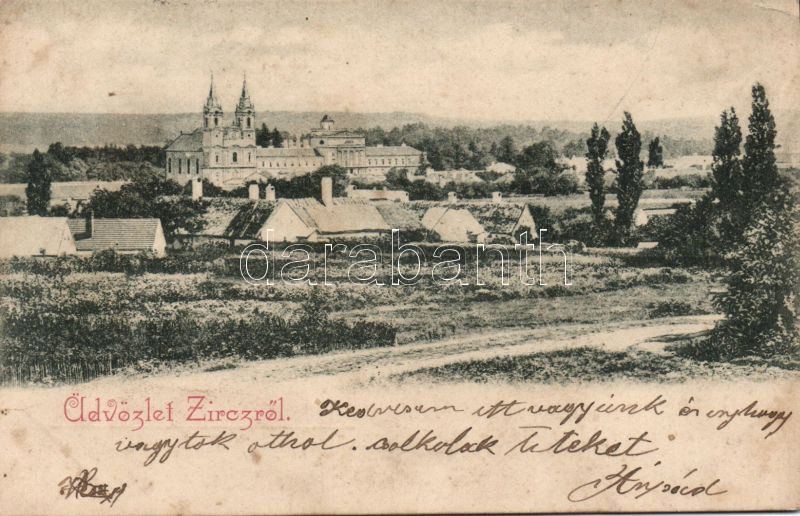 darabanth
Üdvözlet Zirczről.
Kedvesem itt vagyunk és
vagytok othol. csolkolak titeket
Anyád